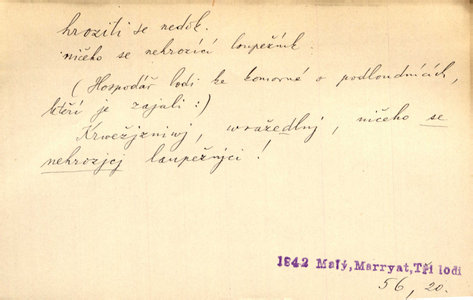 hroziti se nedok.
ničeho se nehrozící loupežník.
(Hospodář lodi ke komorné o podloudnících,
kteří je zajali:)
Krwežjzniwj, wražedlnj, ničeho se
nehrozjcj laupežnjci!
1842 Malý, Marryat, Tři lodi
56, 20.